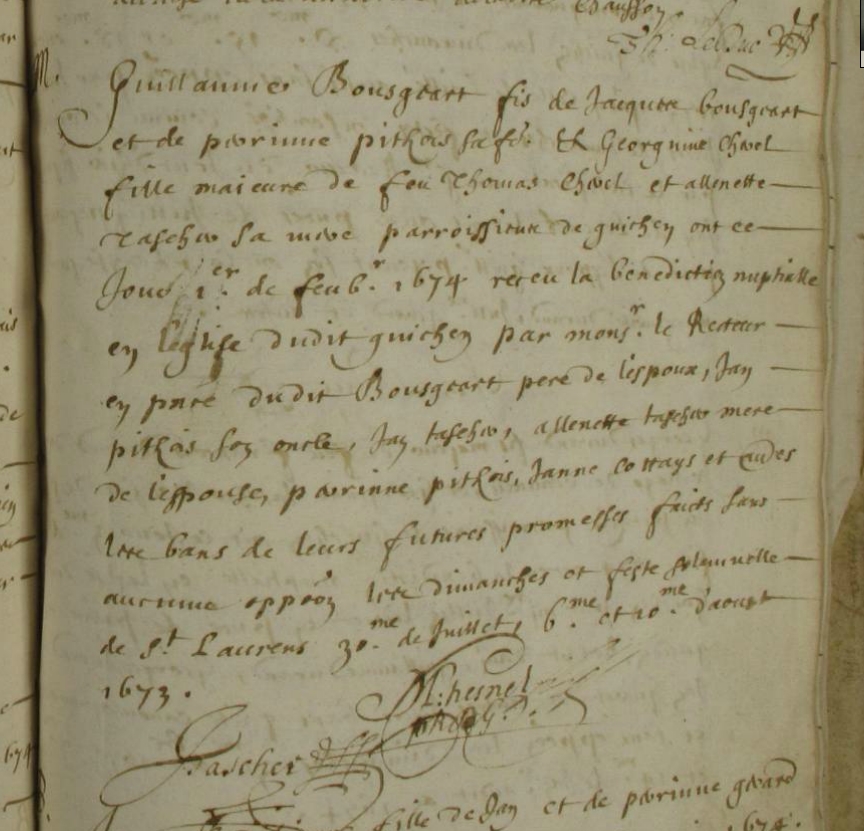 Chausson
M.
Guillaume Bousgeart fis de Jacques bousgeart
et de perrinne pithois sa fe. Et Georgnine Chevel
fille maieure de feu Thomas Chevel et allenette
Tascher sa mere parroissiens de guichen ont ce
Jour 1er. de feubr. 1674 receu la benediction nuptialle
en l'eglise dudit guichen par monsr. le Recteur
en pnce dudit Bousgeart pere de l'espoux, Jan
pithois son oncle, Jan tascher, allenette tascher mere
de l'espouse, perrinne pithois, Janne Cottays et aues
les bans de leurs futures promesses faits sans
aucune oppoon les dimanches et feste solennelle
de St Laurens 30.me de Juillet, 6.me et 10.me d'aoust
1673.
Chesnel
Tascher
fille de Jan et de perrinne gerard
1674.